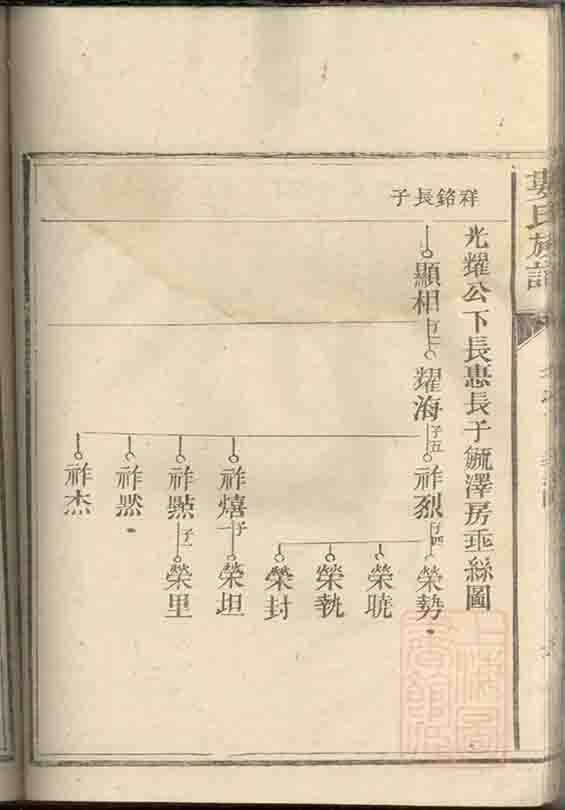 婁氏族譜
光耀公下長惠長子毓澤房垂絲圖
祥銘長子
顯相
子一
耀海
子五
祚烈
子四
榮勢
榮曉
榮執
榮封
祚熺
子一
榮坦
子一
榮里
祚杰
上海圖書館藏